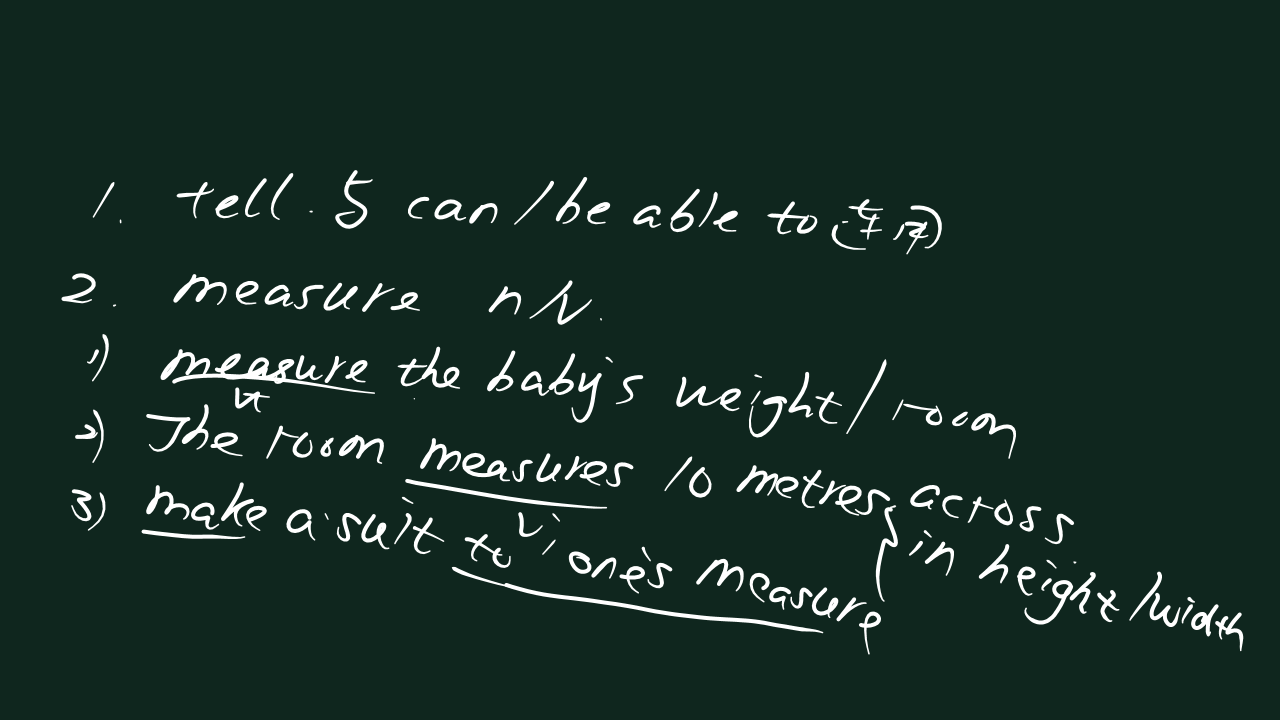 1. tell. 与 can/be able to 连用
2. measure n/v.
1) measure the baby's weight/room
vt
2) The room measures 10 metres { across
vi
in height/width
3) make a suit to one's measure